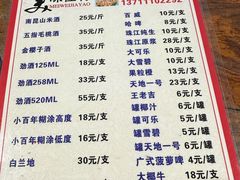 MEIWEIJIAYAO 13711102232
南昆山米酒 25元/斤
五指毛桃酒 35元/斤
金樱子酒 35元/斤
劲酒125ML 16元/支
劲酒258ML 33元/支
劲酒520ML 55元/支
小百年糊涂高度 18元/支
小百年糊涂低度 16元/支
白兰地 30元/支
百威 10元/支
珠江纯生 10元/支
珠江原浆 28元/支
大可乐 10元/支
大雪碧 10元/支
果粒橙 13元/支
天地一号 23元/支
王老吉 6元/罐
罐椰汁 6元/罐
罐可乐 5元/罐
罐雪碧 5元/罐
罐天地一号 6元/罐
广式菠萝啤 5元/罐
大椰牛 18元/支